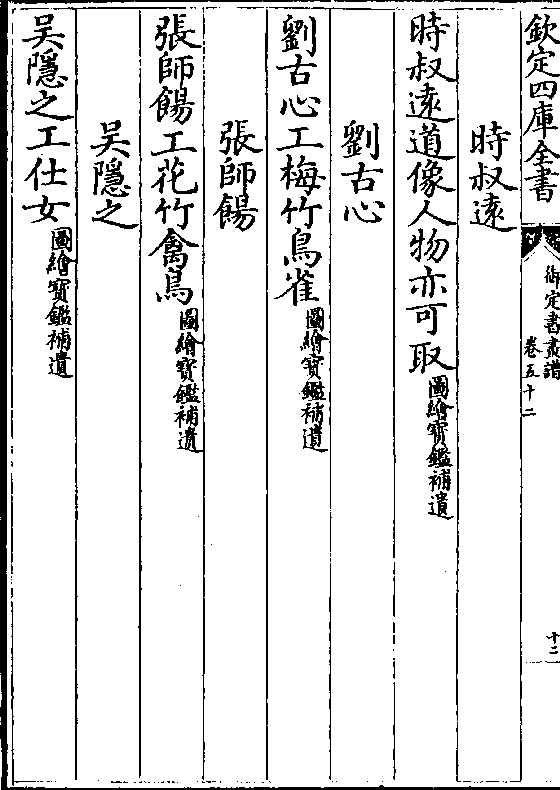 欽定四庫全書
御定書畫譜
卷五十二
十二
時叔遠
時叔遠道像人物亦可取圖繪寶鑑補遺
劉古心
劉古心工梅竹鳥雀圖繪寶鑑補遺
張師餳
張師餳工花竹禽鳥圖繪寶鑑補遺
吳隱之
吳隱之工仕女圖繪寶鑑補遺